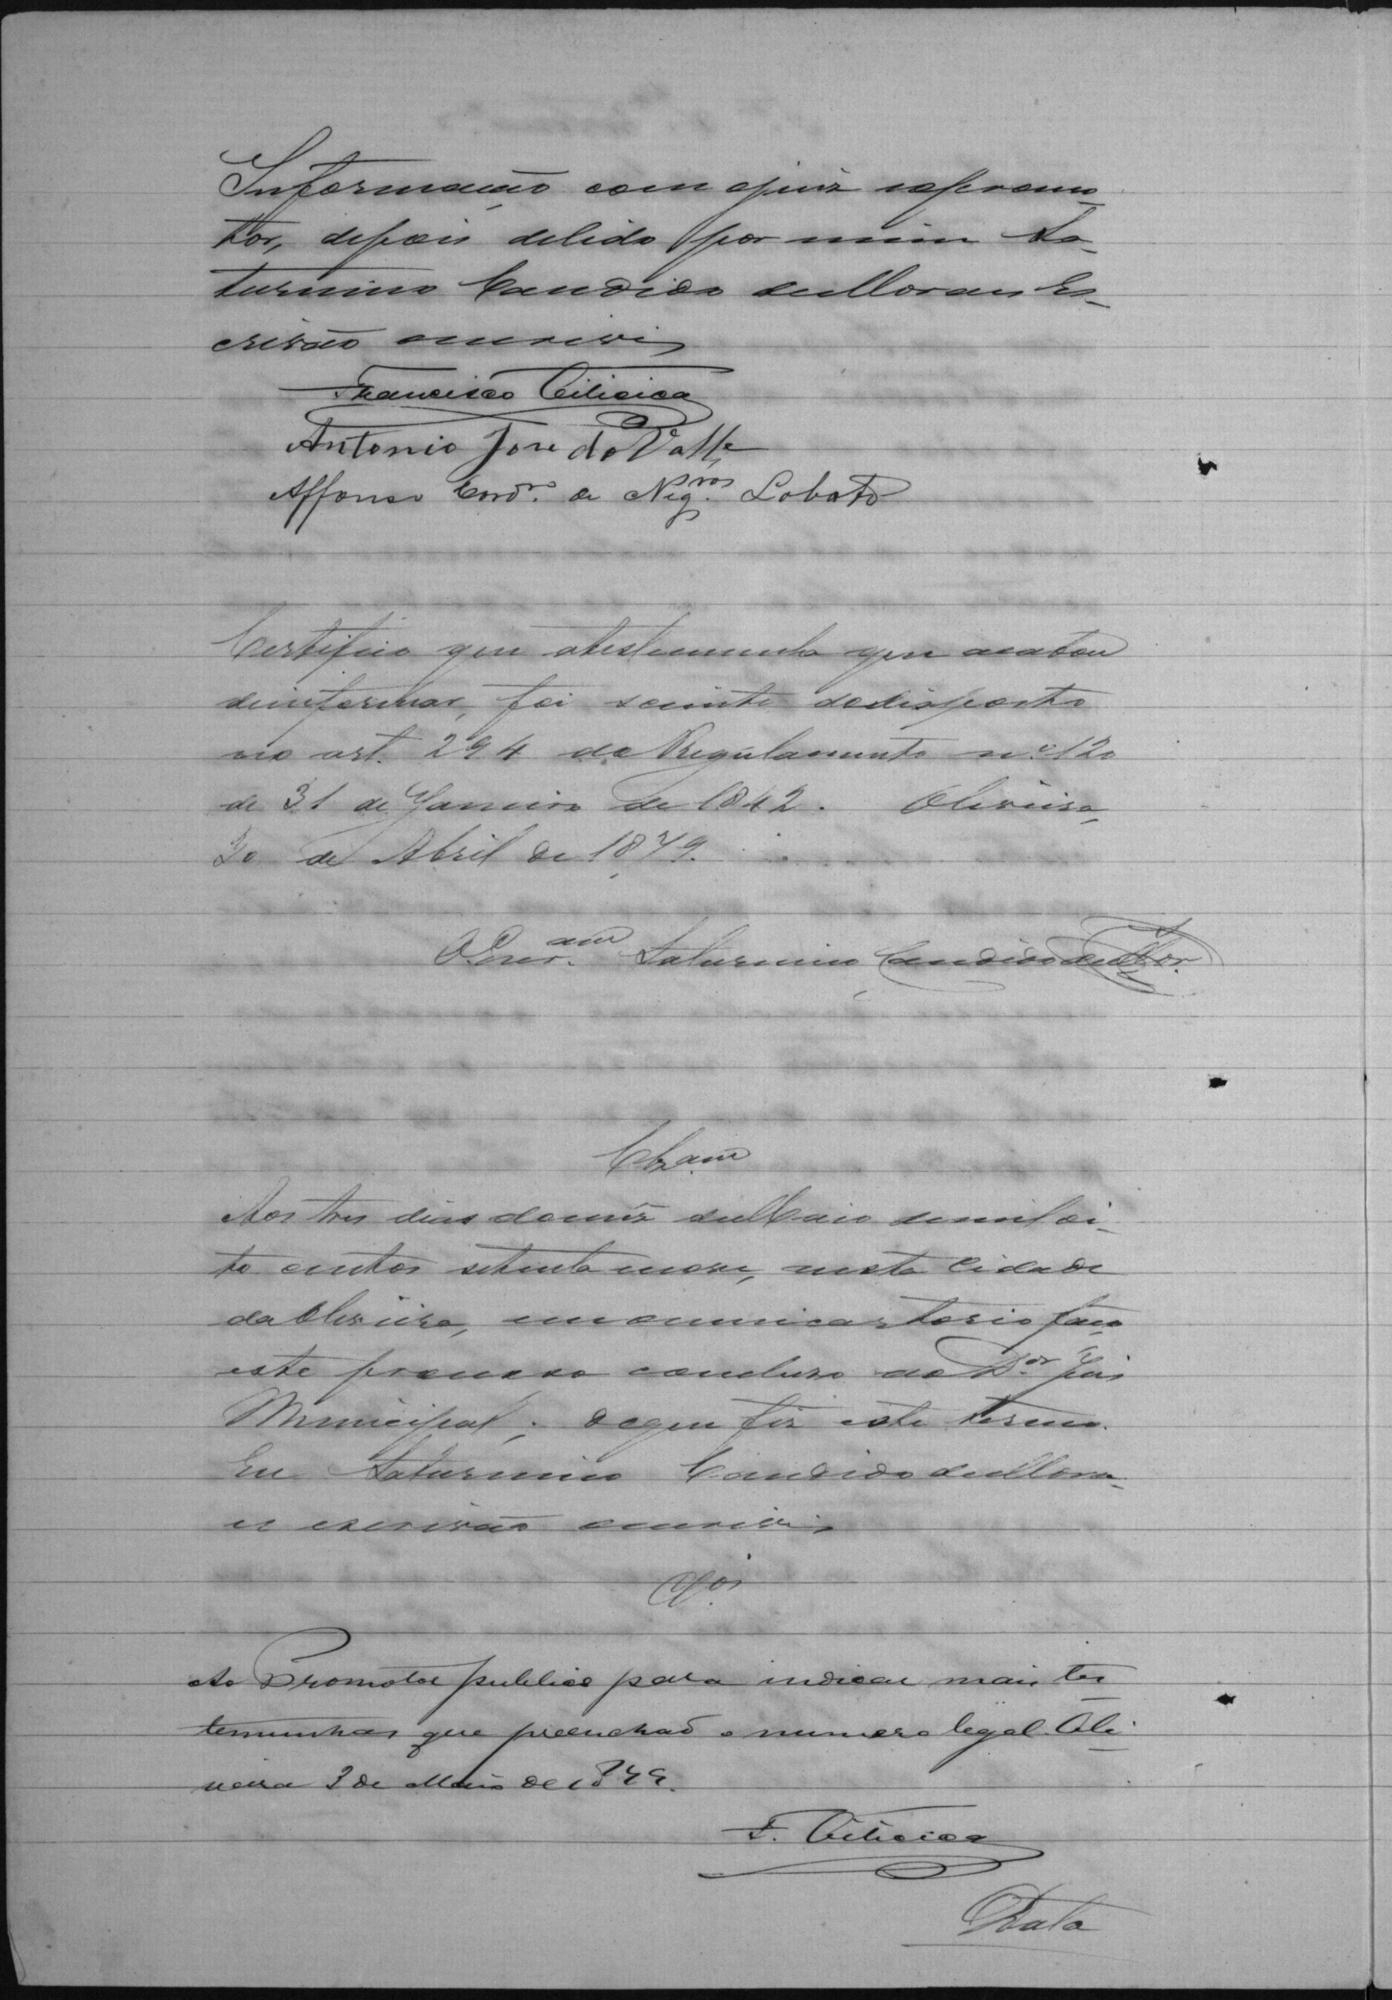 Informação com ojuiz eopromo-
tor, depois delido por mim Sa-
turnino Candido deMoraes Es-
crivão oescrivi
Francisco
Antonio Jose do Valle
Affonso Cord.ro de Neg.ros Lobato
Certifico que atestemunha que acabou
deinformar, foi sciente dodisposto
no art. 294 do Regulamento n.º 120
de 31 de Janeiro de 1842. Oliveira,
30 de Abril de 1879.
O Escr.am Saturnino Candido deMor.
Clz.am
Aos tres dias domez deMaio demil oi-
to centos setenta enove, nesta Cidade
daOliveira, em meu cartorio faço
este processo concluso ao D.or Juiz
Municipal; doque fiz este termo.
Eu Saturnino Candido deMora-
es escrivão oescrivi
Ao Promotor publico para indicar mais tes-
temunhas que preenchaõ o numero legal. Oli-
veira 3 de Maio de 1879.
F.
Data